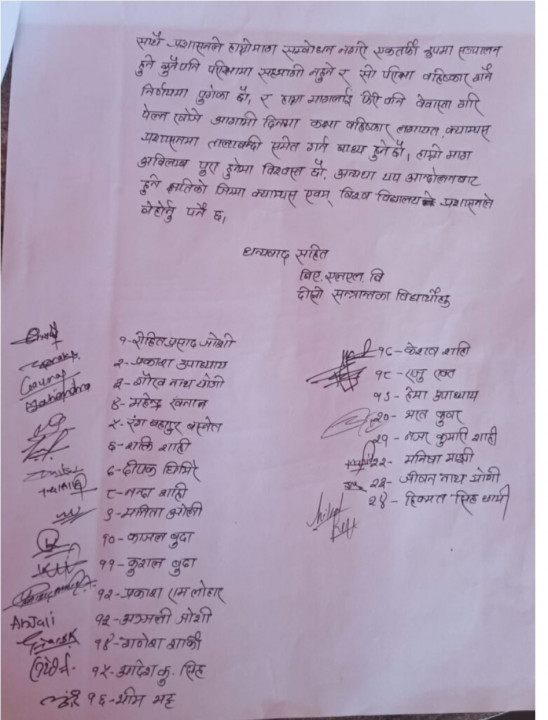 साथै प्रशासनले हाम्रो माग सम्बोधन नगरी एकतर्फी रूपमा सञ्चालन
हुने कुनै पनि परिक्षामा सहभागी नहुने र सो परिक्षा वहिष्कार गर्ने
निर्णयमा पुगेका छौ, र हाम्रा मागलाई फेरि पनि वेवास्ता गरि
पेल्न खोजे आगामी दिनमा कक्षा वहिष्कार लगायत क्याम्पस
प्रशासनमा तालाबन्दी समेत गर्न बाध्य हुनेछौ, हाम्रो माग
अविलम्ब पुरा हुनेमा विश्वस्त छौ, अन्यथा थप आन्दोलनबाट
हुने क्षतिको जिम्मा क्याम्पस एवम् विश्व विद्यालय प्रशासनले
बेहोर्नु पर्ने छ,
धन्यवाद सहित
विए एलएल वि
दोस्रो सत्रान्तका विद्यार्थीहरू
१- रोहित प्रसाद जोशी
२- प्रकाश उपाध्याय
Gaurav ३- गौरव नाथ योगी
Mahendra ४- महेन्द्र खनाल
५- रंग बहादुर बस्नेत
६- शक्ति शाही
७- दीपक घिमिरे
८- नन्दा शाही
९- मनिता ओली
१०- काजल बुढा
११- कुशल बुढा
१२- प्रकाश राम लोहार
Anjali १३- अञ्जली जोशी
Ganesh १४- गणेश शार्की
१५- आदेश कु. सिंह
१६- भीम भट्ट
१७- केशव शाही
१८- रब्जु रावत
१९- हेमा उपाध्याय
२०- भरत कुवर
२१- नजर कुमारी शाही
२२- मनिषा माझी
२३- जीवन नाथ योगी
२४- हिक्मत सिंह धामी